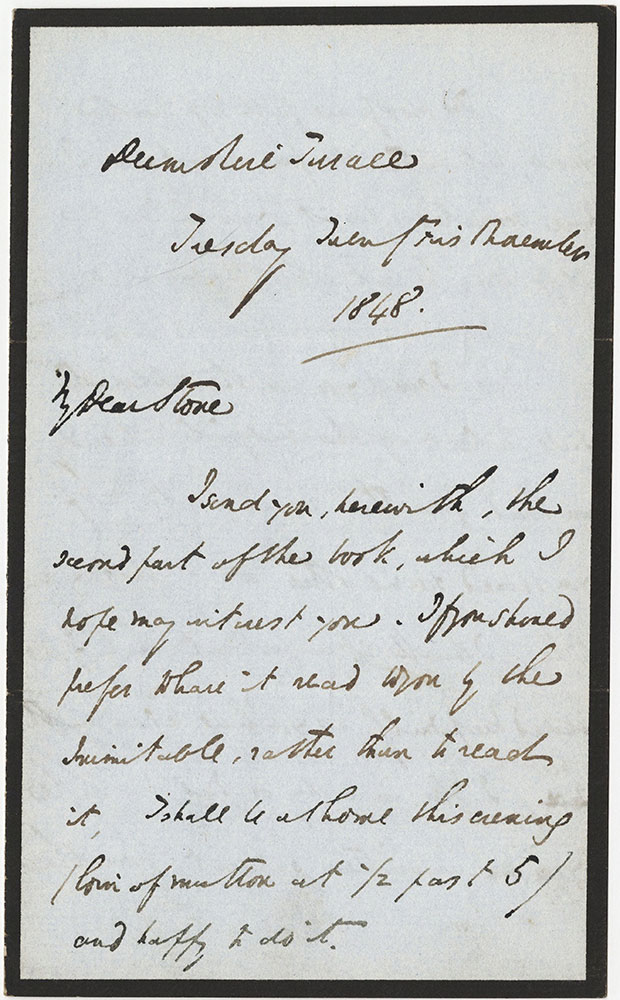 Devonshire Terrace
Tuesday Twenty First November
1848.
My Dear Stone
I send you, herewith, the
second part of the book, which I
hope may interest you. If you should
prefer to have it read to you by the
Inimitable, rather than to read
it, I shall be at home this evening
(loin of mutton at 1/2 past 5)
and happy to do it.